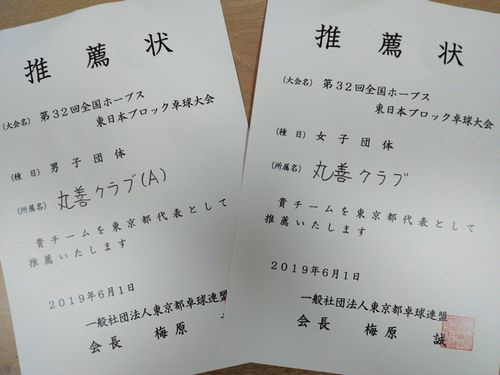 推薦状
(大会名) 第32回全国ホープス
東日本ブロック卓球大会
(種 目) 男子団体
(所属名) 丸善クラブ(A)
貴チームを東京都代表として
推薦いたします
2019年6月1日
一般社団法人東京都卓球連盟
会長 梅原
推薦状
(大会名) 第32回全国ホープス
東日本ブロック卓球大会
(種 目) 女子団体
(所属名) 丸善クラブ
貴チームを東京都代表として
推薦いたします
2019年6月1日
一般社団法人東京都卓球連盟
会長 梅原 誠